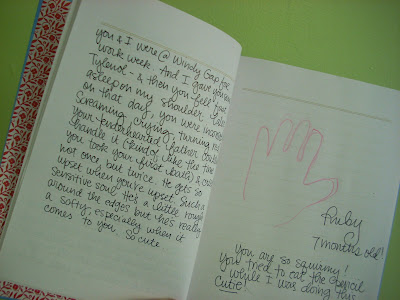 you & I were @ Windy Gap for
work week. And I gave you some
Tylenol - & then you fell
asleep on my shoulder. Later
on that day, you were
screaming, crying, turning red.
Your tenderhearted father couldn't
handle it (kinda like the time
you took your first bath) & cried
not once, but twice. He gets so
upset when you're upset. Such a
sensitive soul. He's a little rough
around the edges but he's really
a softy, especially when it
comes to you. So cute
Ruby
7 months old!
You are so squirmy!
You tried to eat the pencil
while I was doing this.
Cutie!